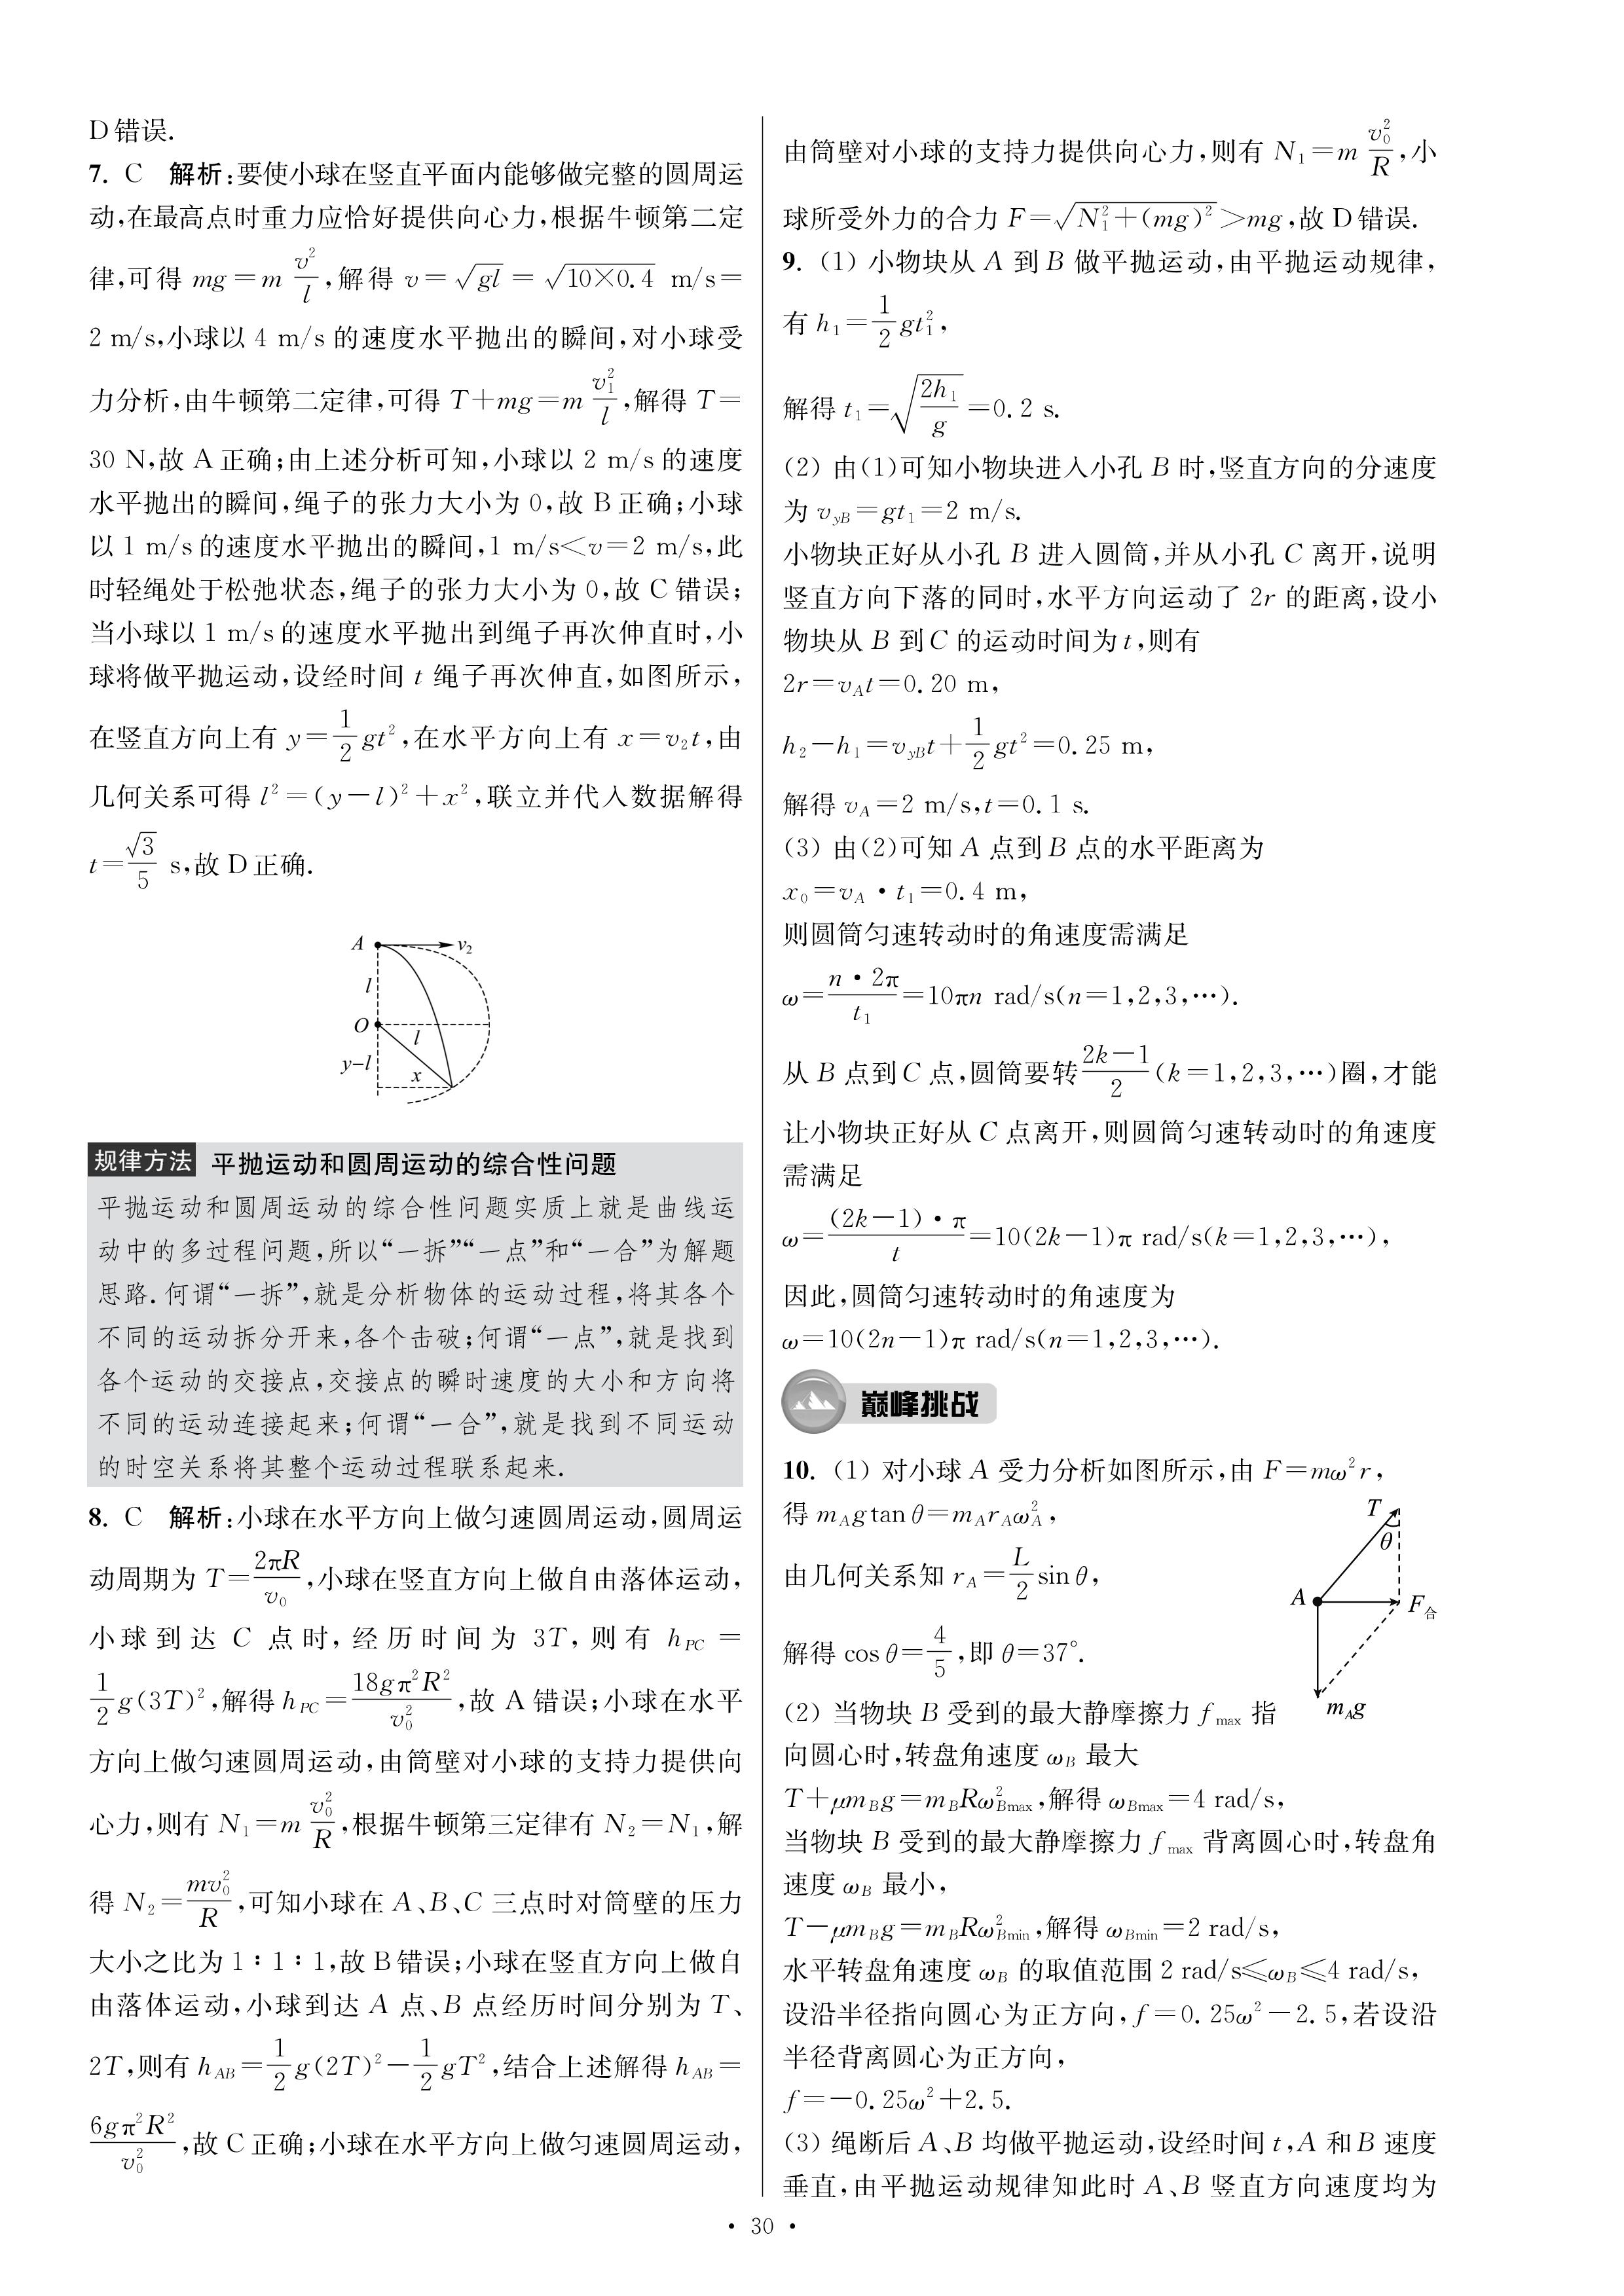 D错误.
7. C 解析:要使小球在竖直平面内能够做完整的圆周运
动,在最高点时重力应恰好提供向心力,根据牛顿第二定
律,可得 mg=m v²/l,解得 v=√(gl)=√(10×0.4) m/s=
2 m/s,小球以 4 m/s 的速度水平抛出的瞬间,对小球受
力分析,由牛顿第二定律,可得 T+mg=m v₁²/l,解得 T=
30 N,故 A正确;由上述分析可知,小球以 2 m/s 的速度
水平抛出的瞬间,绳子的张力大小为 0,故 B正确;小球
以 1 m/s 的速度水平抛出的瞬间,1 m/s<v=2 m/s,此
时轻绳处于松弛状态,绳子的张力大小为 0,故 C错误;
当小球以 1 m/s 的速度水平抛出到绳子再次伸直时,小
球将做平抛运动,设经时间 t 绳子再次伸直,如图所示,
在竖直方向上有 y=1/2 gt²,在水平方向上有 x=v₂t,由
几何关系可得 l²=(y-l)²+x²,联立并代入数据解得
t=√3/5 s,故 D正确.
A v₂
l
O
l
y-l
x
规律方法 平抛运动和圆周运动的综合性问题
平抛运动和圆周运动的综合性问题实质上就是曲线运
动中的多过程问题,所以“一拆”“一点”和“一合”为解题
思路.何谓“一拆”,就是分析物体的运动过程,将其各个
不同的运动拆分开来,各个击破;何谓“一点”,就是找到
各个运动的交接点,交接点的瞬时速度的大小和方向将
不同的运动连接起来;何谓“一合”,就是找到不同运动
的时空关系将其整个运动过程联系起来.
8. C 解析:小球在水平方向上做匀速圆周运动,圆周运
动周期为 T=2πR/v₀,小球在竖直方向上做自由落体运动,
小球到达 C 点时,经历时间为 3T,则有 h_PC=
1/2 g(3T)²,解得 h_PC=18gπ²R²/v₀²,故 A错误;小球在水平
方向上做匀速圆周运动,由筒壁对小球的支持力提供向
心力,则有 N₁=m v₀²/R,根据牛顿第三定律有 N₂=N₁,解
得 N₂=mv₀²/R,可知小球在 A、B、C 三点时对筒壁的压力
大小之比为 1∶1∶1,故 B错误;小球在竖直方向上做自
由落体运动,小球到达 A 点、B 点经历时间分别为 T、
2T,则有 h_AB=1/2 g(2T)²-1/2 gT²,结合上述解得 h_AB=
6gπ²R²/v₀²,故 C正确;小球在水平方向上做匀速圆周运动,
由筒壁对小球的支持力提供向心力,则有 N₁=m v₀²/R,小
球所受外力的合力 F=√(N₁²+(mg)²)>mg,故 D错误.
9. (1) 小物块从 A 到 B 做平抛运动,由平抛运动规律,
有 h₁=1/2 gt₁²,
解得 t₁=√(2h₁/g)=0.2 s.
(2) 由(1)可知小物块进入小孔 B 时,竖直方向的分速度
为 v_yB=gt₁=2 m/s.
小物块正好从小孔 B 进入圆筒,并从小孔 C 离开,说明
竖直方向下落的同时,水平方向运动了 2r 的距离,设小
物块从 B 到 C 的运动时间为 t,则有
2r=v_A t=0.20 m,
h₂-h₁=v_yB t+1/2 gt²=0.25 m,
解得 v_A=2 m/s,t=0.1 s.
(3) 由(2)可知 A 点到 B 点的水平距离为
x₀=v_A·t₁=0.4 m,
则圆筒匀速转动时的角速度需满足
ω=n·2π/t₁=10πn rad/s(n=1,2,3,…).
从 B 点到 C 点,圆筒要转 (2k-1)/2 (k=1,2,3,…)圈,才能
让小物块正好从 C 点离开,则圆筒匀速转动时的角速度
需满足
ω=(2k-1)·π/t=10(2k-1)π rad/s(k=1,2,3,…),
因此,圆筒匀速转动时的角速度为
ω=10(2n-1)π rad/s(n=1,2,3,…).
巅峰挑战
10. (1) 对小球 A 受力分析如图所示,由 F=mω²r,
得 m_A g tan θ=m_A r_A ω_A²,
由几何关系知 r_A=L/2 sin θ,
解得 cos θ=4/5,即 θ=37°.
T
θ
A F合
m_A g
(2) 当物块 B 受到的最大静摩擦力 f_max 指
向圆心时,转盘角速度 ω_B 最大
T+μm_B g=m_B Rω²_Bmax,解得 ω_Bmax=4 rad/s,
当物块 B 受到的最大静摩擦力 f_max 背离圆心时,转盘角
速度 ω_B 最小,
T-μm_B g=m_B Rω²_Bmin,解得 ω_Bmin=2 rad/s,
水平转盘角速度 ω_B 的取值范围 2 rad/s≤ω_B≤4 rad/s,
设沿半径指向圆心为正方向,f=0.25ω²-2.5,若设沿
半径背离圆心为正方向,
f=-0.25ω²+2.5.
(3) 绳断后 A、B 均做平抛运动,设经时间 t,A 和 B 速度
垂直,由平抛运动规律知此时 A、B 竖直方向速度均为
· 30 ·